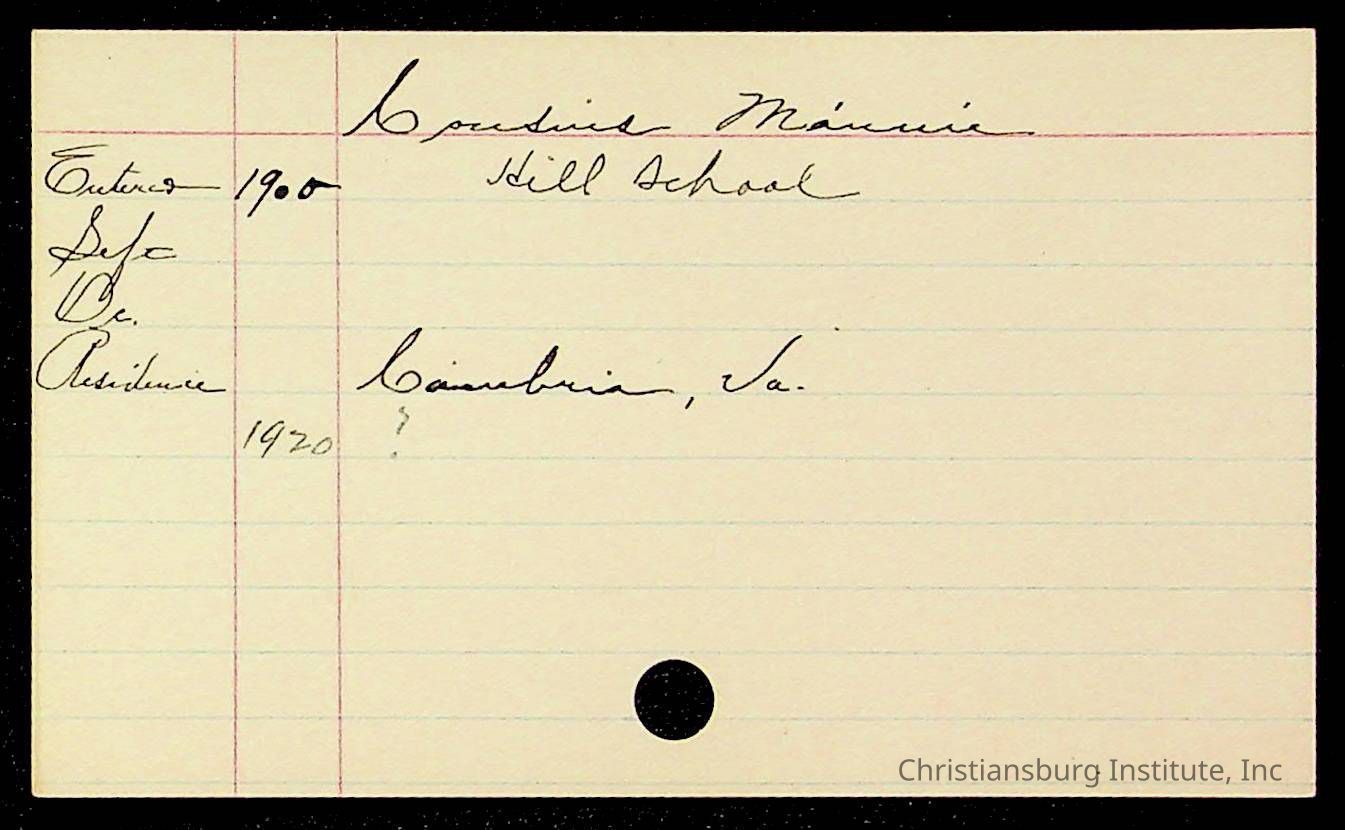 Cousins Mannie
Entered 1900 Hill School
Left
Oc.
Residence Cambria, Va.
1920 ?
Christiansburg Institute, Inc